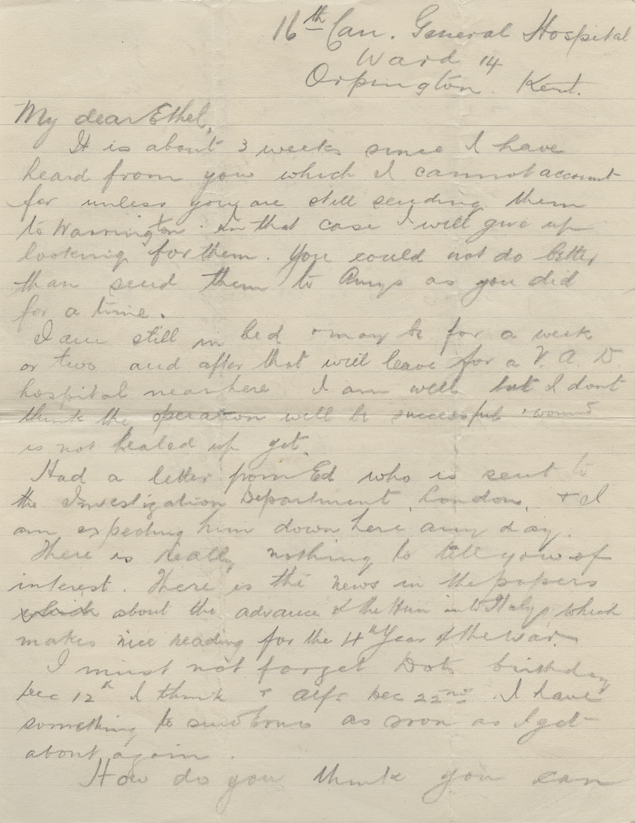 16th Can. General Hospital
Ward 14
Orpington. Kent.
My dear Ethel,
It is about 3 weeks since I have
heard from you which I cannot account
for unless you are still sending them
to Warrington. in that case I will give up
looking for them. You could not do better
than send them to Amys as you did
for a time.
I am still in bed + may be for a week
or two and after that will leave for a V. A. D.
hospital near here I am well but I dont
think the operation will be successful wound
is not healed up yet.
Had a letter from Ed who is sent to
the Investigation Department, London, + I
am expecting him down here any day.
There is really nothing to tell you of
interest. There is the news in the papers
about the advance of the Hun into Italy which
makes nice reading for the 4th Year of the war.
I must not forget Dots birthday
Dec 12th I think + Alfs Dec 22nd. I have
something to send as soon as I get
about again.
How do you think you can